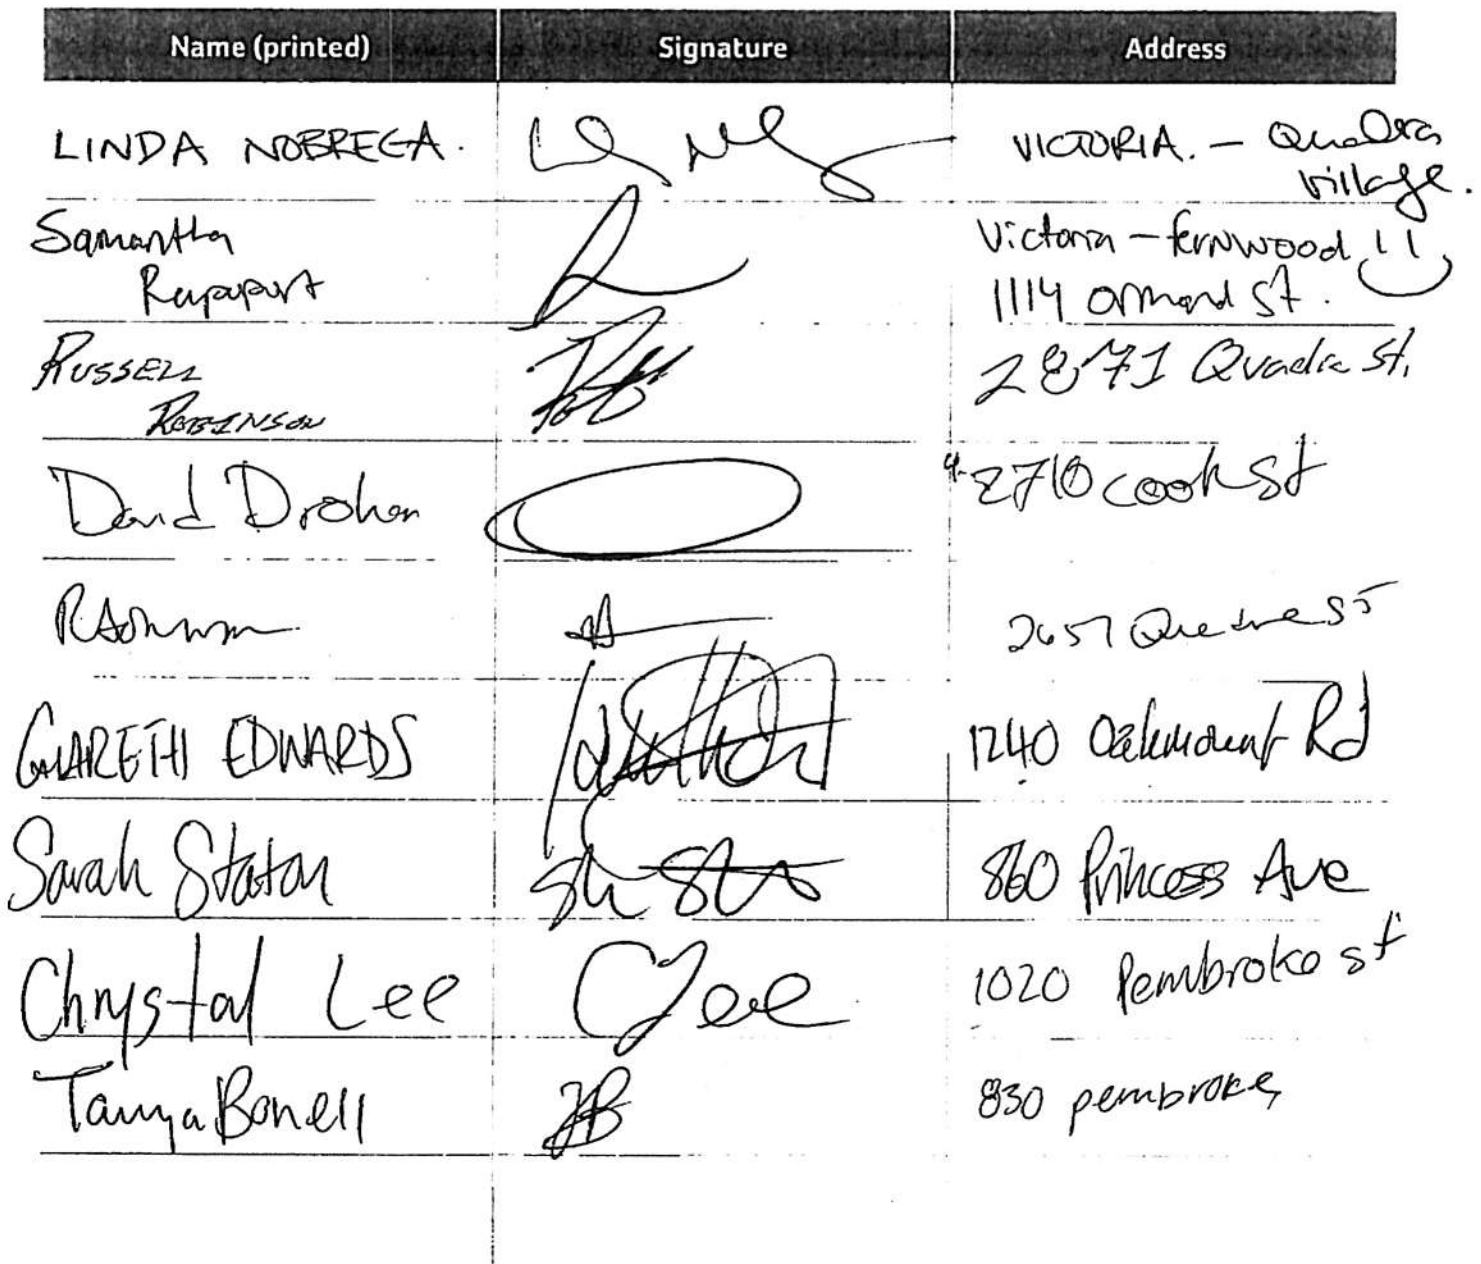 Name (printed) Signature Address
LINDA NOBREGA. VICTORIA. - Quadra
village.
Samantha Victoria - fernwood !!
Rapaport 1114 ormond St.
RUSSELL 2871 Quadra St.
ROBINSON
David Drohan 4-2710 cook St
2657
GARETH EDWARDS 1240 Oakmount Rd
Sarah Staton 860 Princess Ave
Chrystal Lee CLee 1020 Pembroke st
Tanya Bonell TB 830 pembroke